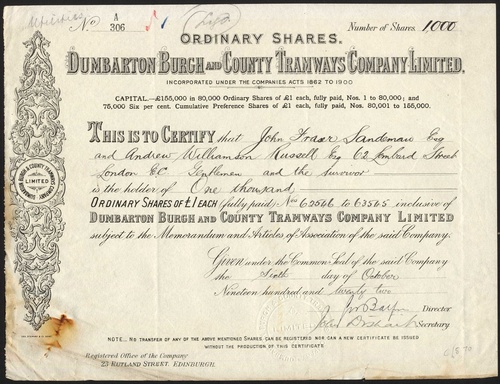 No A 306
Number of Shares. 1000
ORDINARY SHARES.
DUMBARTON BURGH AND COUNTY TRAMWAYS COMPANY LIMITED.
INCORPORATED UNDER THE COMPANIES ACTS 1862 TO 1900
CAPITAL.—£155,000 in 80,000 Ordinary Shares of £1 each, fully paid, Nos. 1 to 80,000; and
75,000 Six per cent. Cumulative Preference Shares of £1 each, fully paid, Nos. 80,001 to 155,000.
THIS IS TO CERTIFY that John Fraser Sandeman Esq
and Andrew Williamson Russell Esq 62 Lombard Street
London E.C. Gentlemen and the survivor
is the holder of One thousand
ORDINARY SHARES OF £1 EACH (fully paid) Nos 62566 to 63565 inclusive of
DUMBARTON BURGH AND COUNTY TRAMWAYS COMPANY LIMITED
subject to the Memorandum and Articles of Association of the said Company.
Given under the Common Seal of the said Company
the Sixth day of October
Nineteen hundred and twenty two
Director
Secretary.
DUMBARTON BURGH & COUNTY TRAMWAYS COMPANY LIMITED
NOTE.. NO TRANSFER OF ANY OF THE ABOVE MENTIONED SHARES, CAN BE REGISTERED NOR CAN A NEW CERTIFICATE BE ISSUED
WITHOUT THE PRODUCTION OF THIS CERTIFICATE.
Registered Office of the Company
23 RUTLAND STREET, EDINBURGH.